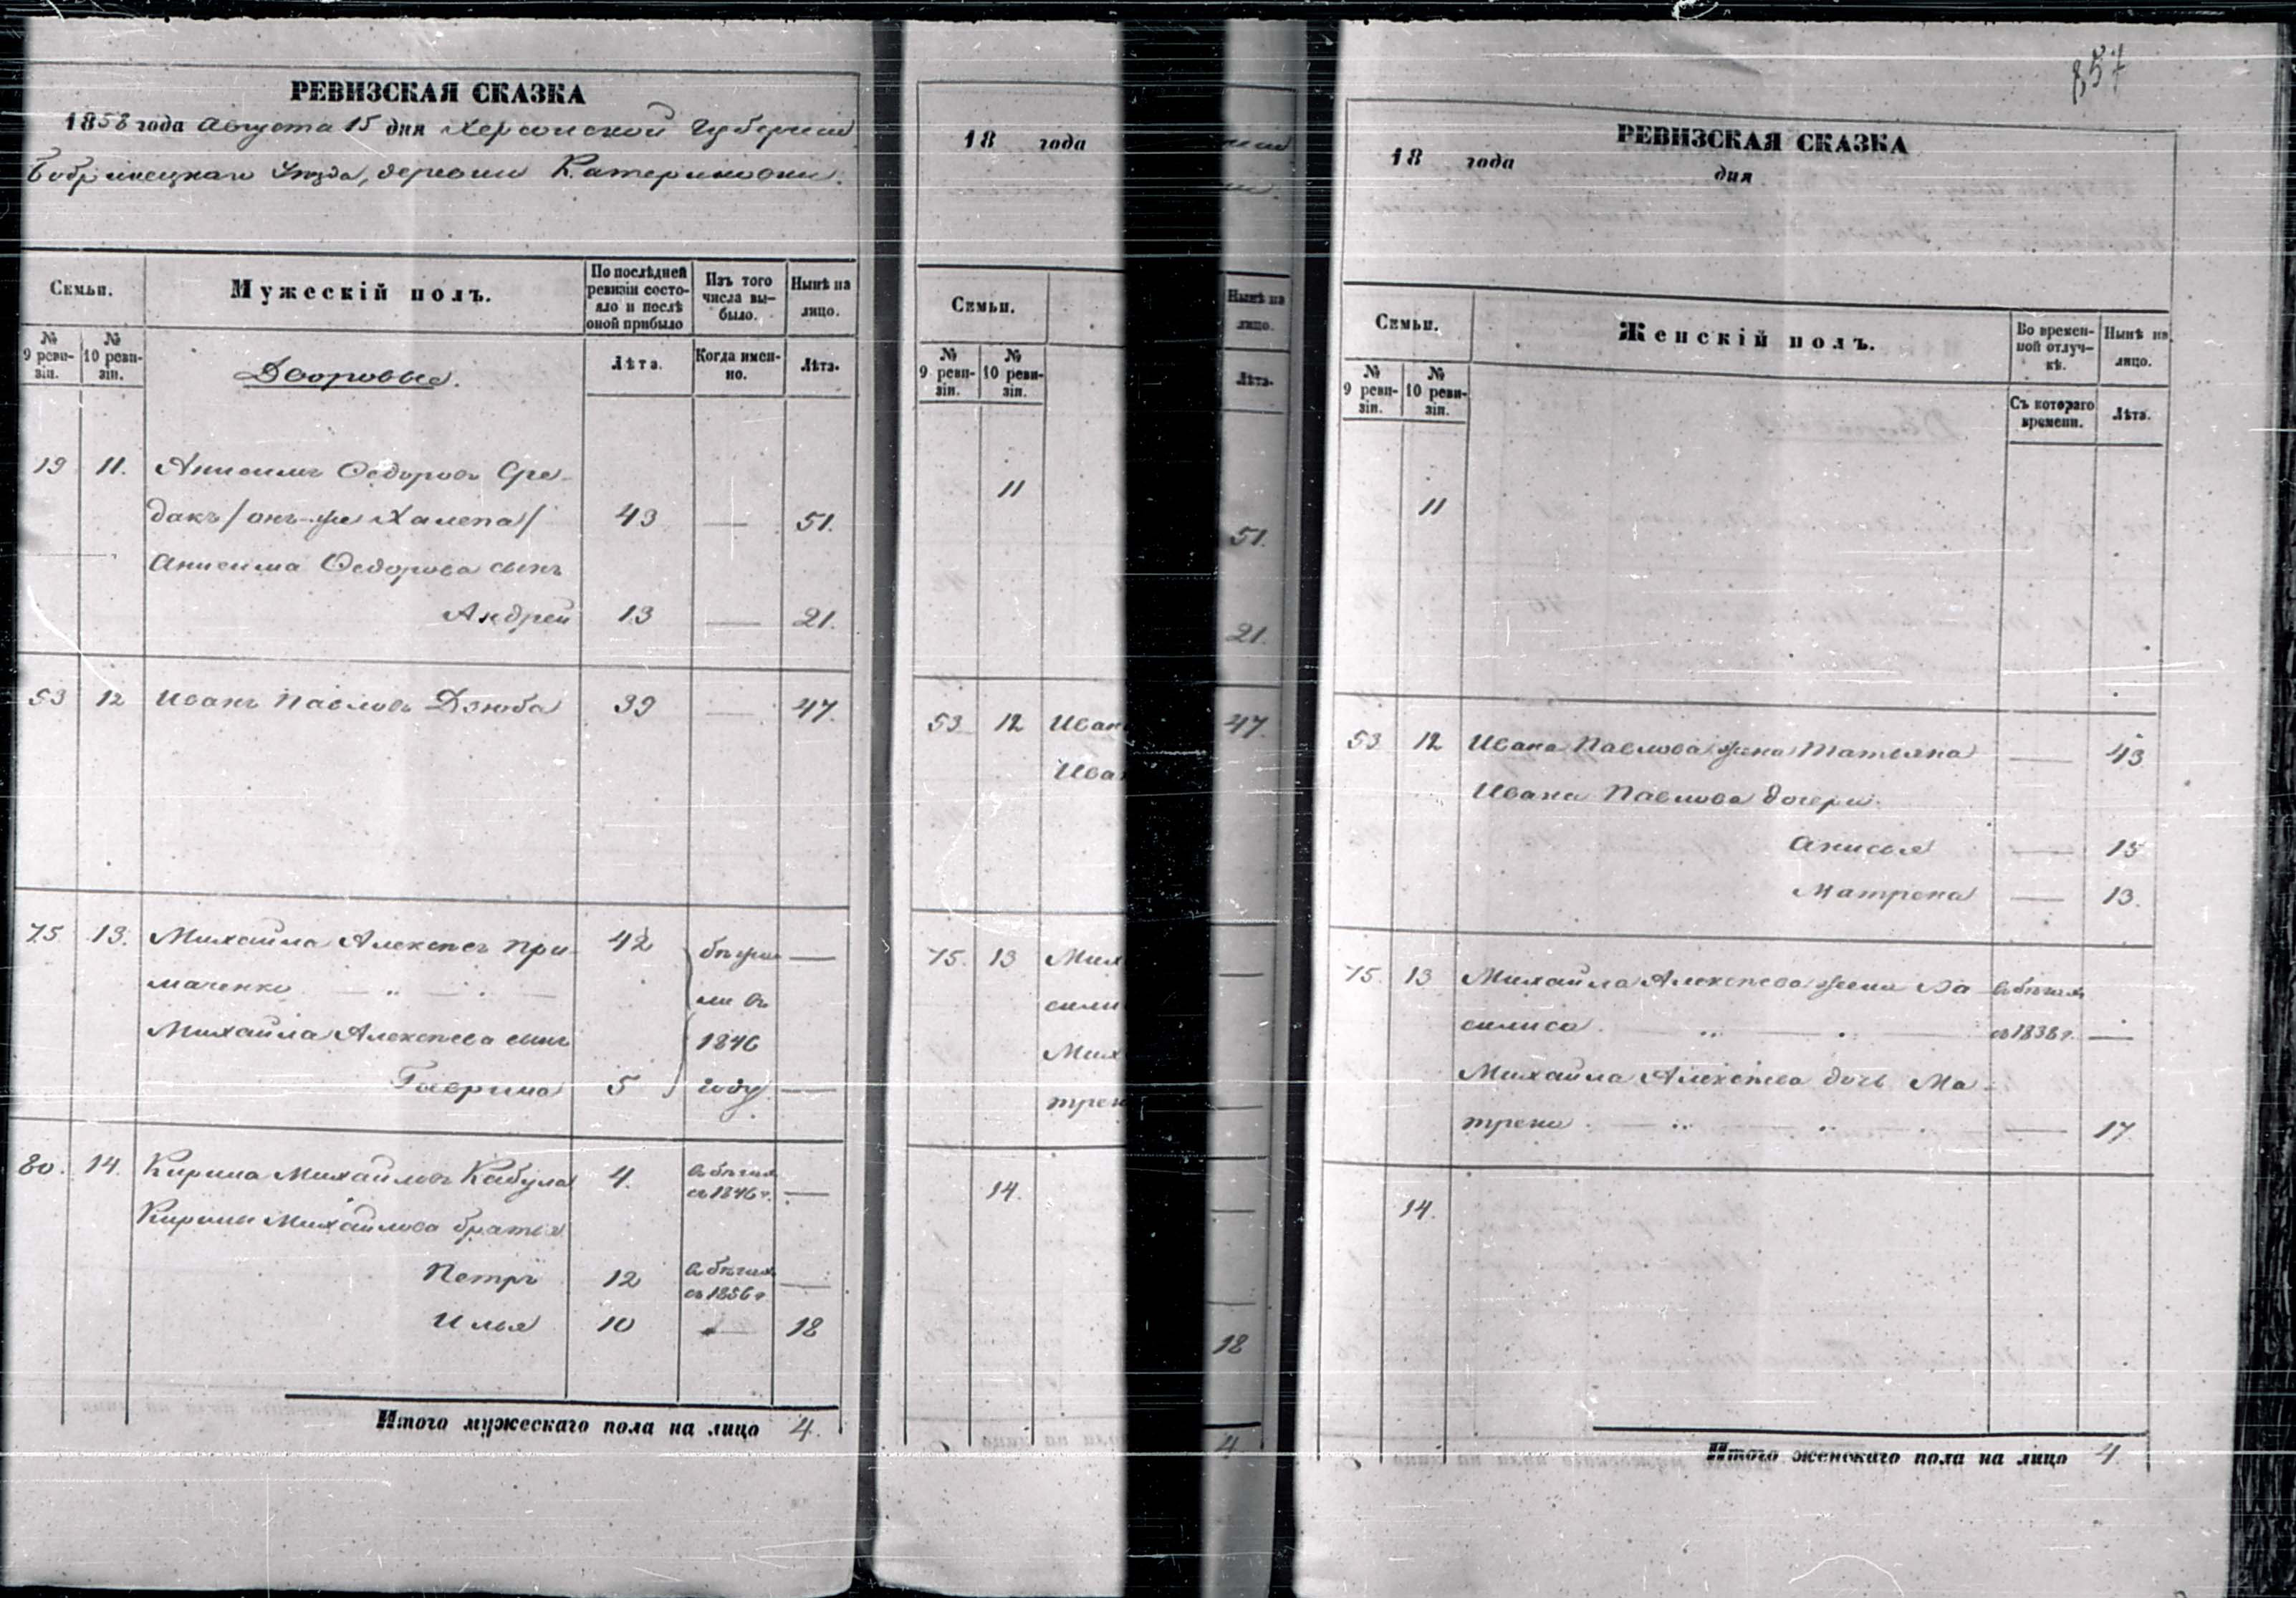 РЕВИЗСКАЯ СКАЗКА
1858 года Августа 15 дня Херсонской Губернии
Бобринецкаго Уѣзда, деревни Катериновки.
Семьи.
Мужескій полъ.
По послѣдней ревизіи состояло и послѣ оной прибыло
Изъ того числа выбыло.
Нынѣ на лицо.
№ 9 ревизіи.
№ 10 ревизіи.
Дворовые.
Лѣта.
Когда именно.
Лѣта.
19 11. Анисимъ Ѳедоровъ Сре-
дакъ /онъ же Халепа/ 43 — 51.
Анисима Ѳедорова сынъ
Андрей 13 — 21.
53 12 Иванъ Павловъ Дзюба 39 — 47.
75. 13. Михайла Алексѣевъ При- 42 бѣжа —
маченко ли въ
Михайла Алексѣева сынъ 1846
Гаврила 5 году —
80. 14. Кирила Михайловъ Кабула 4. въ бѣгахъ съ 1846 г. —
Кирилы Михайлова братья
Петръ 12 въ бѣгахъ съ 1856 г. —
Илья 10 — 18
Итого мужескаго пола на лицо 4.
18 года
Семьи.
№ 9 ревизіи.
№ 10 ревизіи.
11
53 12 Иван
Иван
75. 13 Мих
сили
Мих
трен
14.
Нынѣ на лицо.
Лѣта.
51.
21.
47.
18
4
857
РЕВИЗСКАЯ СКАЗКА
18 года дня
Семьи.
Женскій полъ.
Во временной отлучкѣ.
Нынѣ на лицо.
№ 9 ревизіи.
№ 10 ревизіи.
Съ котораго времени.
Лѣта.
11
53 12 Ивана Павлова жена Татьяна — 43
Ивана Павлова дочери
Анисья — 15
Матрена — 13.
75. 13 Михайла Алексѣева жена Ва- въ бѣгахъ
силиса съ 1838 г. —
Михайла Алексѣева дочь Ма-
трена — 17
14.
Итого женскаго пола на лицо 4.